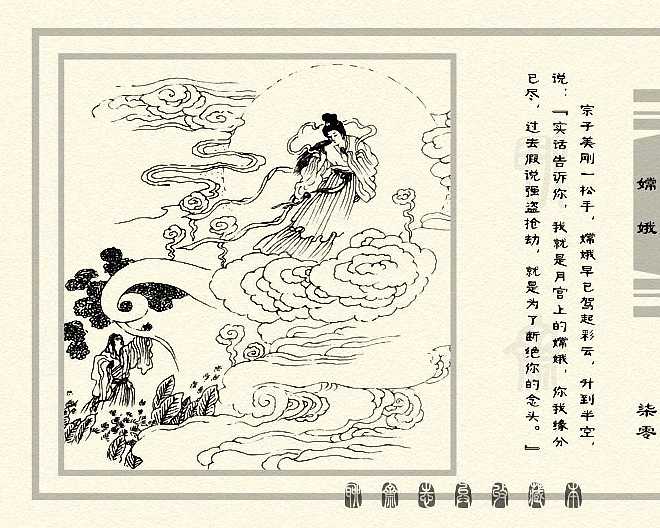 宗子美刚一松手，嫦娥早已驾起彩云，升到半空，
说：『实话告诉你，我就是月宫上的嫦娥，你我缘分
已尽，过去假说强盗抢劫，就是为了断绝你的念头。』
嫦娥
柒零
聊斋志异收藏本